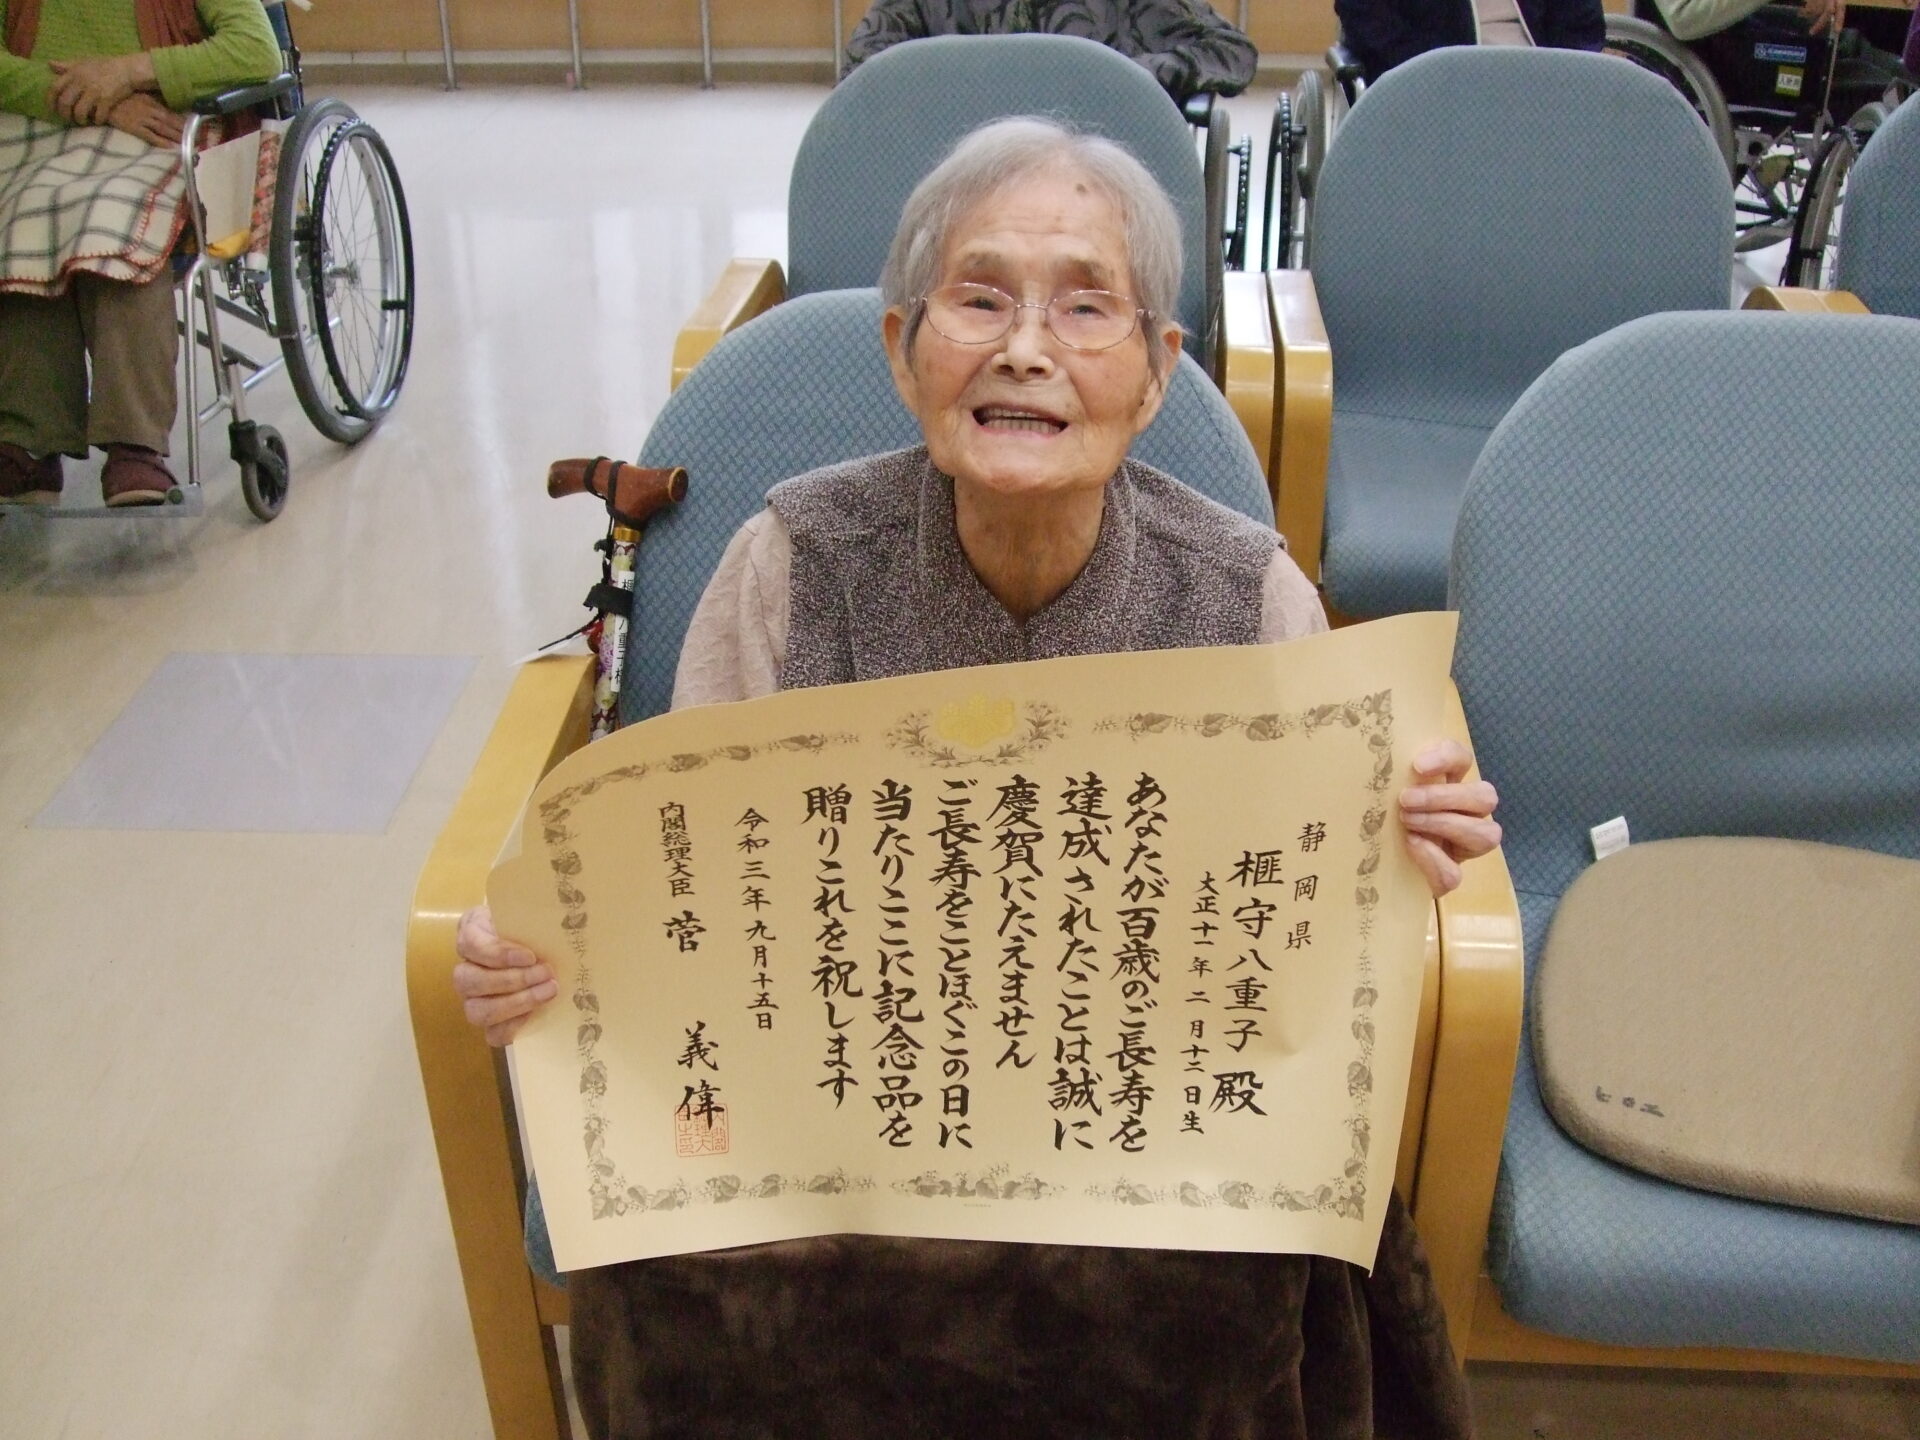 静岡県
榧守八重子殿
大正十一年二月十二日生
あなたが百歳のご長寿を
達成されたことは誠に
慶賀にたえません
ご長寿をことほぐこの日に
当たりここに記念品を
贈りこれを祝します
令和三年九月十五日
内閣総理大臣 菅 義偉
ヒロエ